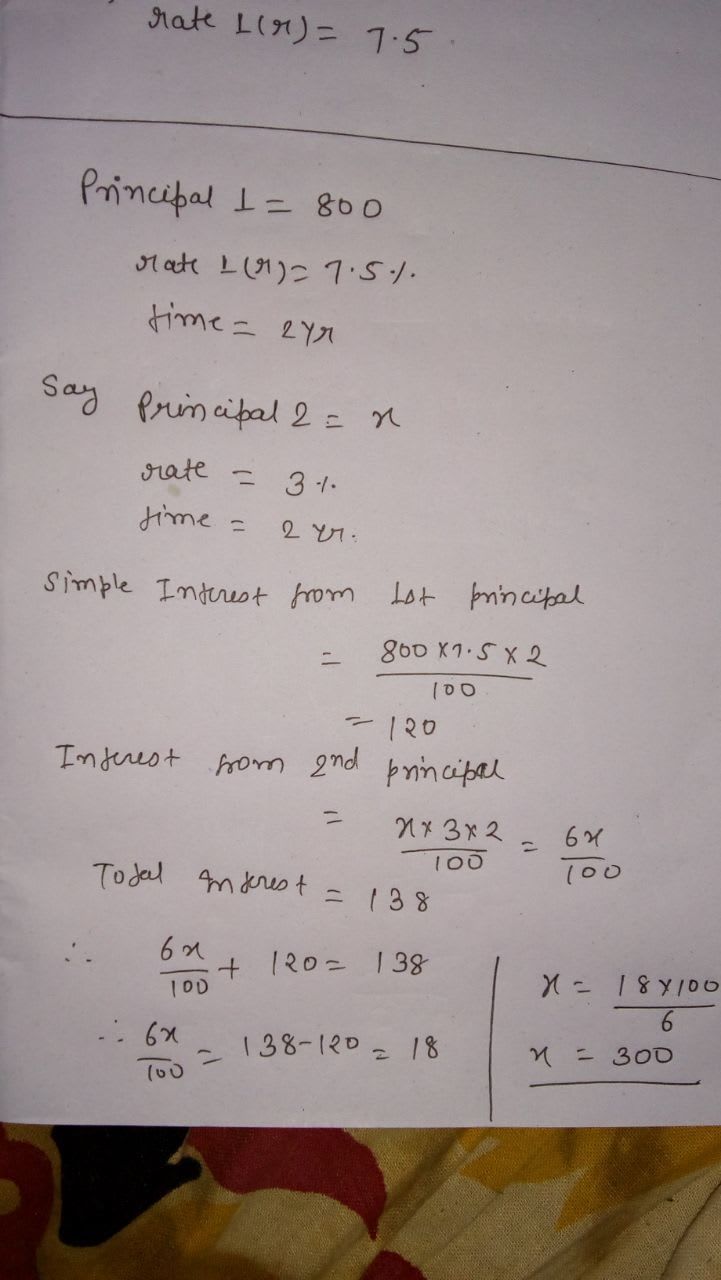 rate 1(r) = 7.5
Principal 1 = 800
rate 1(r) = 7.5%
time = 2yr
Say Principal 2 = x
rate = 3%
time = 2 yr.
Simple Interest from 1st principal
= 800 x 7.5 x 2 / 100
= 120
Interest from 2nd principal
= x x 3 x 2 / 100 = 6x / 100
Total interest = 138
∴ 6x / 100 + 120 = 138
∴ 6x / 100 = 138-120 = 18
x = 18 x 100 / 6
x = 300